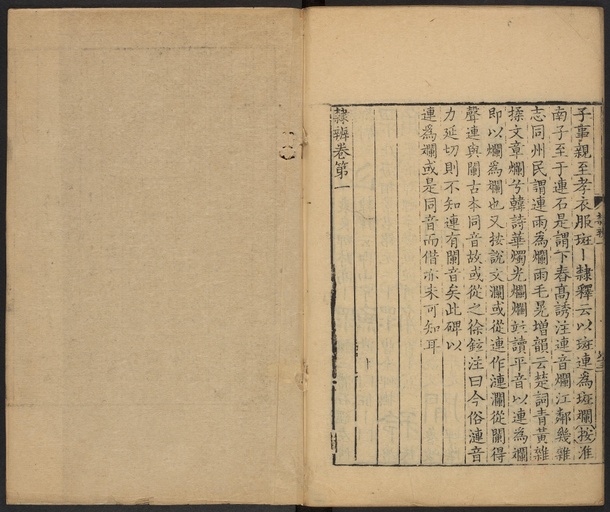 子事親至孝衣服斑丨隸釋云以斑連為斑斕按淮
南子至于連石是謂下舂高誘注連音爛江鄰幾雜
志同州民謂連雨為爛雨毛晃增韻云楚詞青黃雜
揉文章爛兮韓詩華燭光爛爛竝讀平音以連為斕
即以爛為斕也又按說文瀾或從連作漣瀾從闌得
聲連與闌古本同音故或從之徐鉉注曰今俗漣音
力延切則不知連有闌音矣此碑以
連為斕或是同音而借亦未可知耳
隸辨卷第一